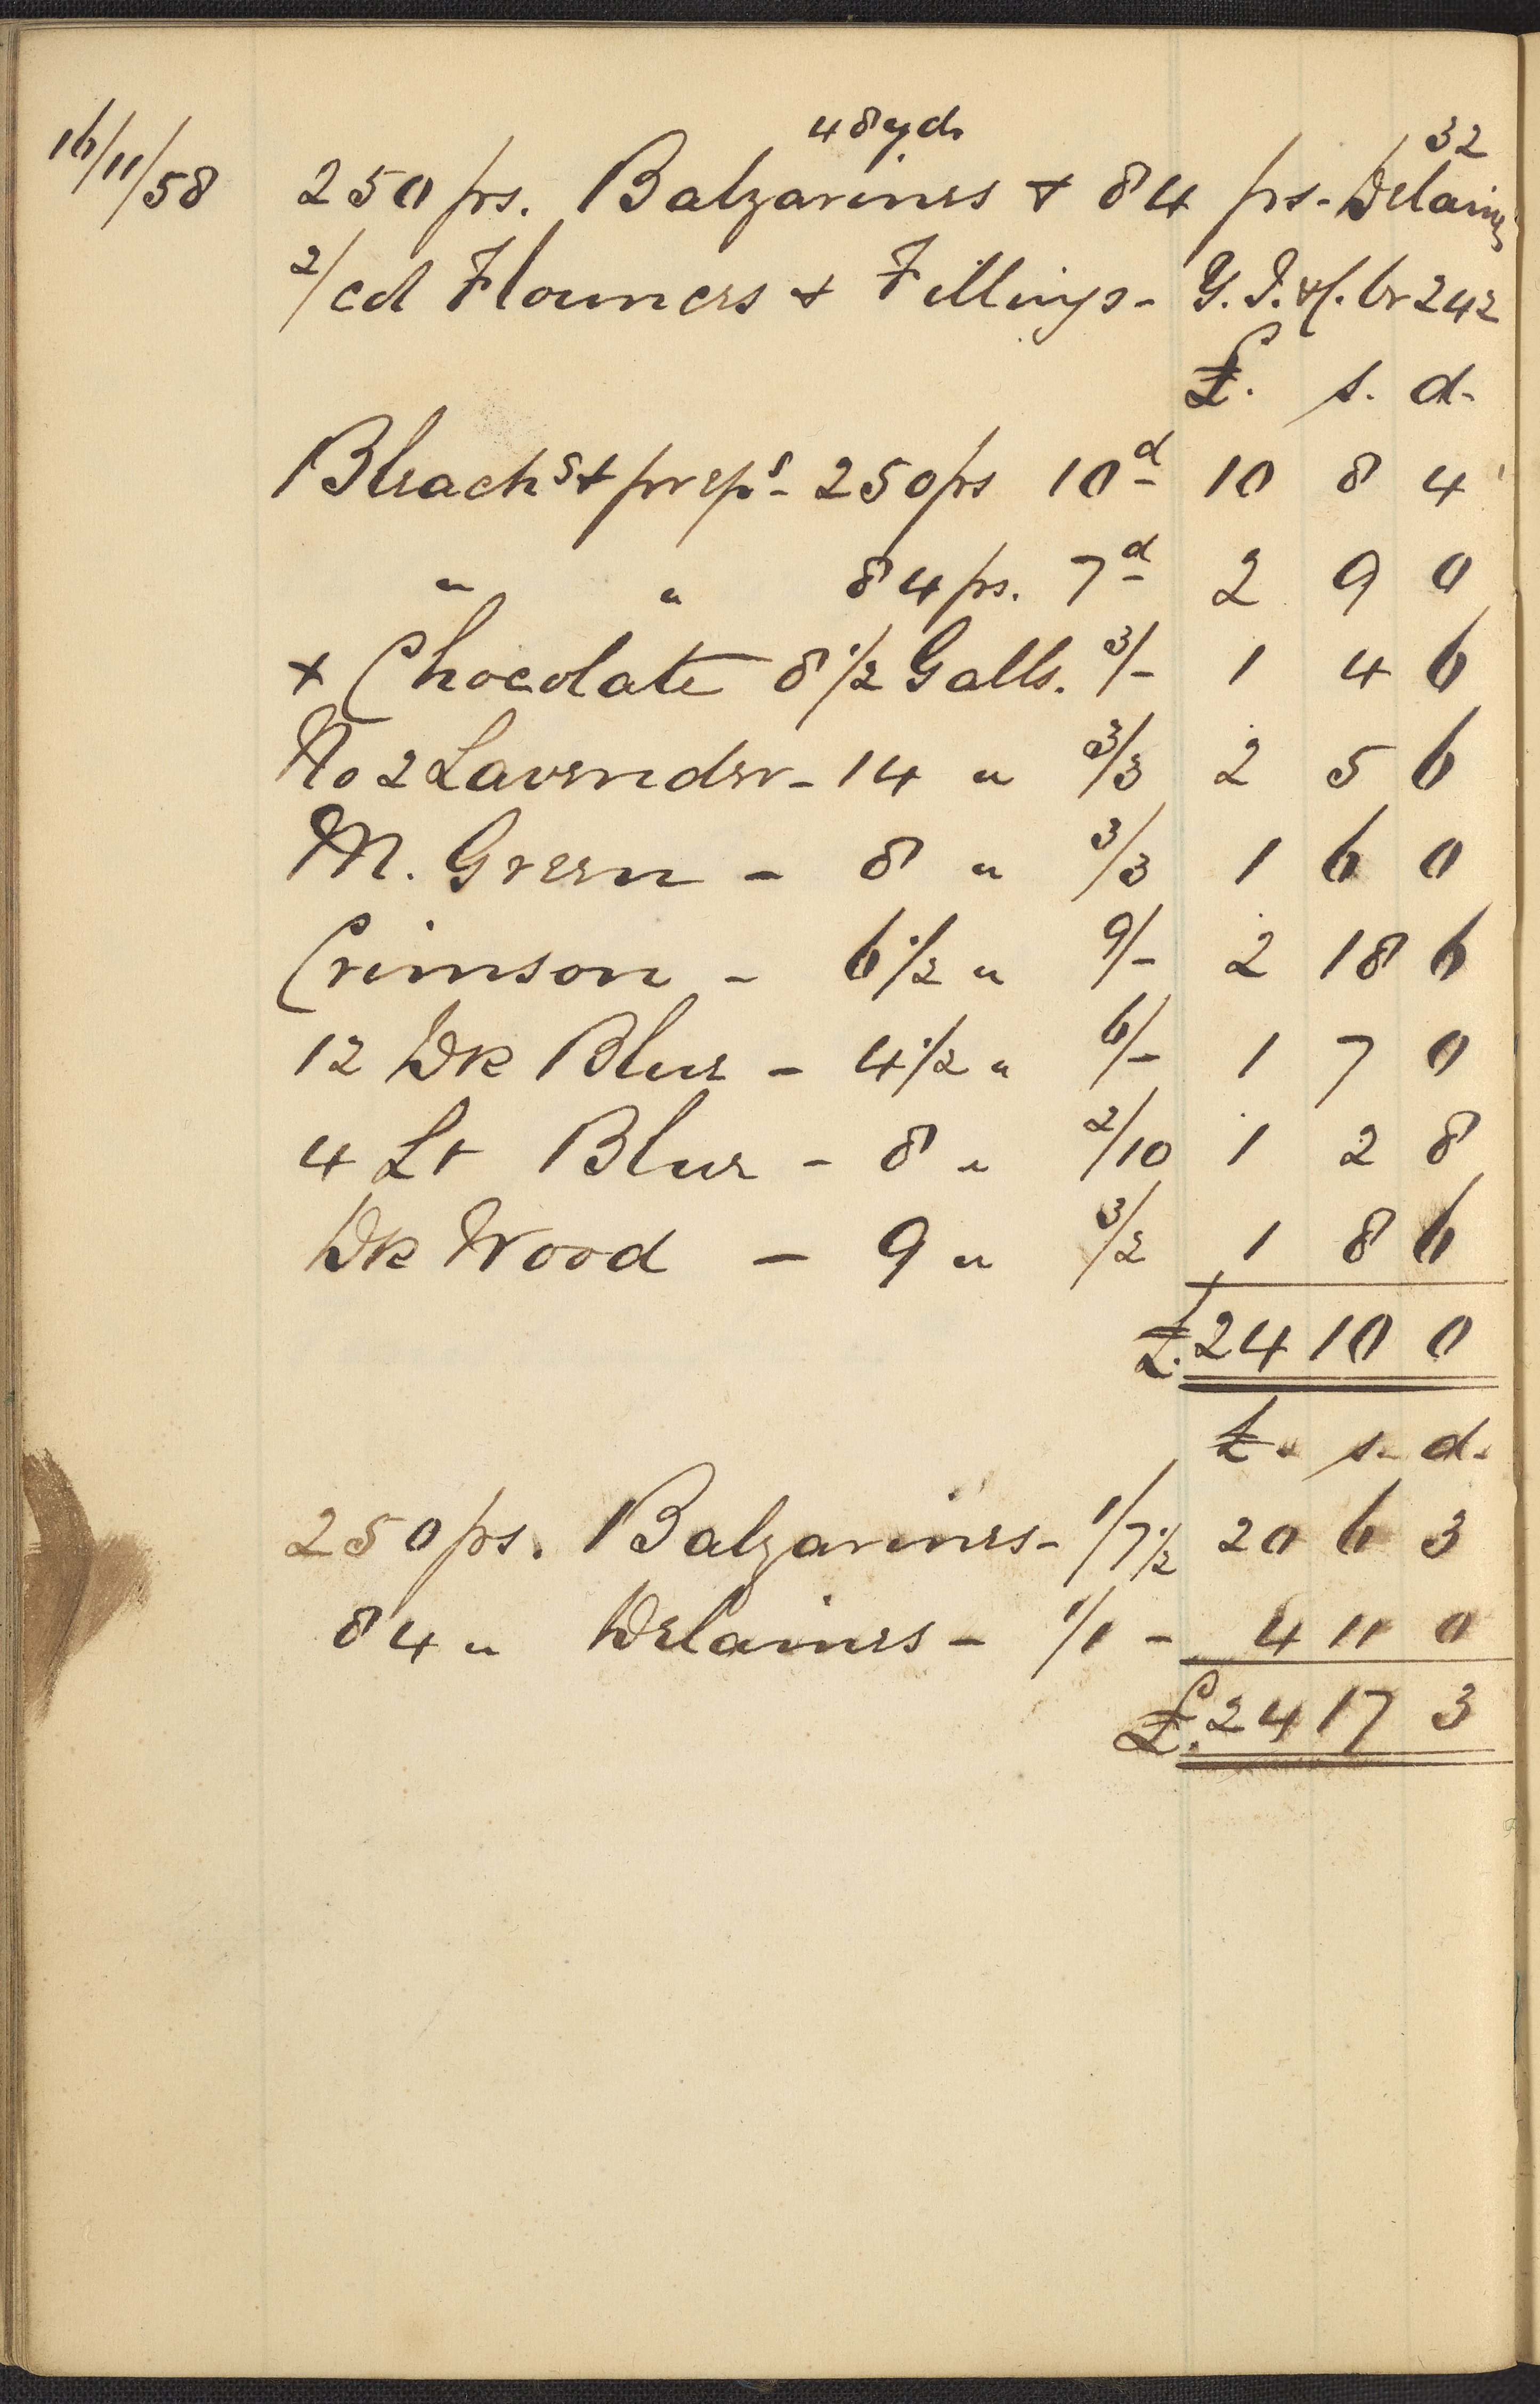 48yds 32
16/11/58 250 ps. Balzarines & 84 ps. Delaines
2/cd Flounces & Fillings - G.I. br 242
£. s. d.
Bleachs & preps - 250 ps 10d 10 8 4
" " 84 ps. 7d 2 9 0
+ Chocolate 8 1/2 Galls. 3/- 1 4 6
No 2 Lavender - 14 " 3/3 2 5 6
M. Green - 8 " 3/3 1 6 0
Crimson - 6 1/2 " 9/- 2 18 6
12 Dk Blue - 4 1/2 " 6/- 1 7 0
4 Lt Blue - 8 " 2/10 1 2 8
Dk Wood - 9 " 3/2 1 8 6
£. 24 10 0
£. s. d.
250 ps. Balzarines - 1/7 1/2 20 6 3
84 " Delaines - 1/1 - 4 11 0
£. 24 17 3